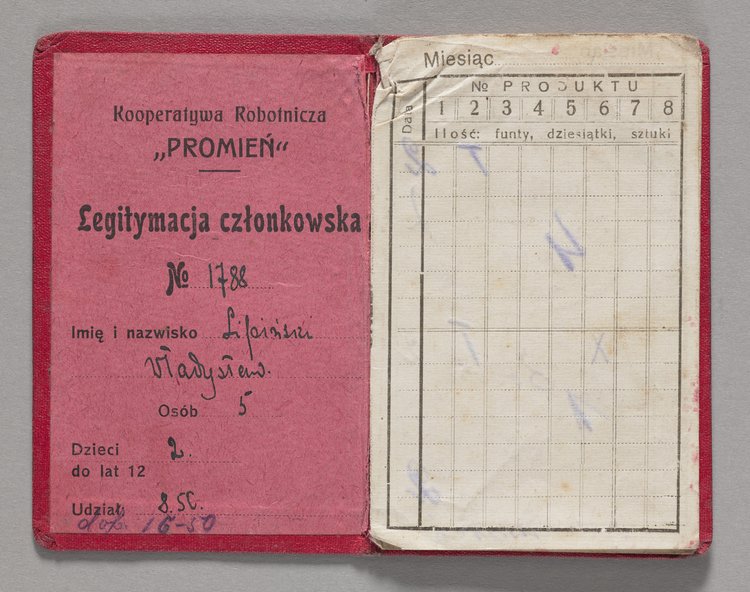 Kooperatywa Robotnicza
„PROMIEŃ“
Legitymacja członkowska
№ 1788
Imię i nazwisko Lipiński
Władysław.
Osób 5
Dzieci 2.
do lat 12
Udział: 8.50.
dop. 16-50
Miesiąc
Data
№ PRODUKTU
1 2 3 4 5 6 7 8
Ilość: funty, dziesiątki, sztuki